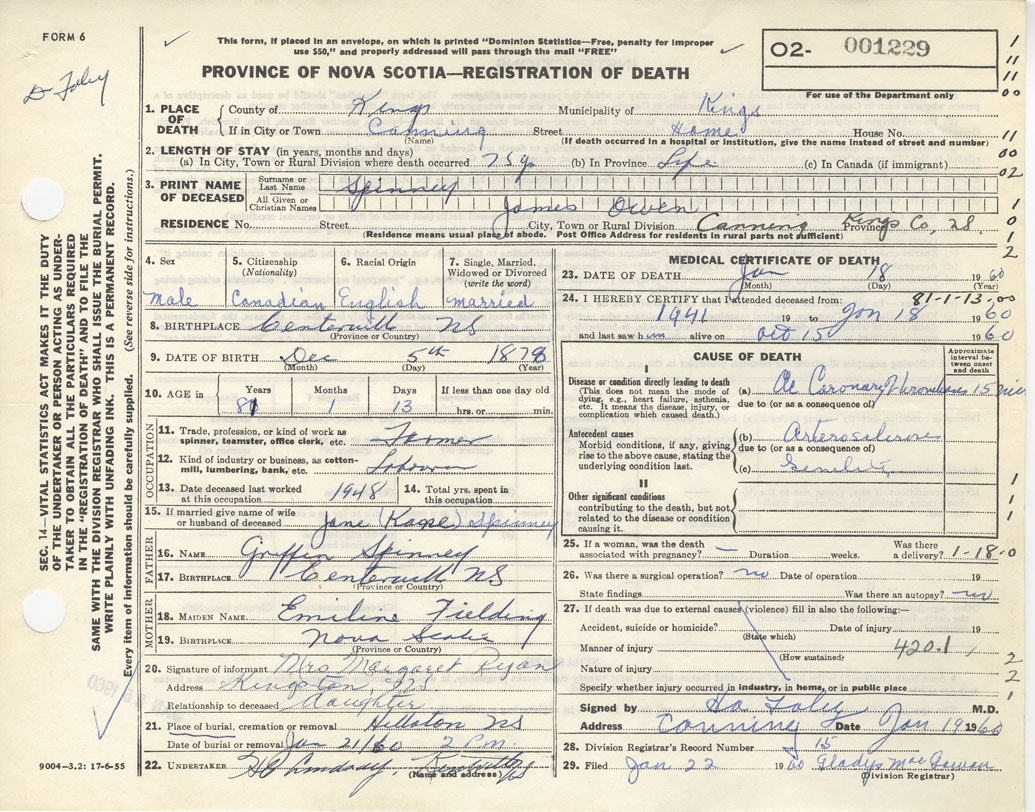 FORM 6
This form, if placed in an envelope, on which is printed "Dominion Statistics—Free, penalty for improper
use $50," and properly addressed will pass through the mail "FREE"
PROVINCE OF NOVA SCOTIA—REGISTRATION OF DEATH
02- 001229
For use of the Department only
Dr Foley
1. PLACE OF DEATH County of Kings Municipality of Kings
If in City or Town Canning Street Home House No.
(Name) (If death occurred in a hospital or institution, give the name instead of street and number)
2. LENGTH OF STAY (in years, months and days)
(a) In City, Town or Rural Division where death occurred 75 yr (b) In Province Life (c) In Canada (if immigrant)
3. PRINT NAME OF DECEASED Surname or Last Name Spinney
All Given or Christian Names James Owen
RESIDENCE No. Street City, Town or Rural Division Canning Province Kings Co, 28
(Residence means usual place of abode. Post Office Address for residents in rural parts not sufficient)
4. Sex 5. Citizenship (Nationality) 6. Racial Origin 7. Single, Married, Widowed or Divorced (write the word)
Male Canadian English married
8. BIRTHPLACE Centerville NS
(Province or Country)
9. DATE OF BIRTH Dec 5th 1878
(Month) (Day) (Year)
10. AGE in Years Months Days If less than one day old
81 1 13 hrs. or min.
OCCUPATION
11. Trade, profession, or kind of work as spinner, teamster, office clerk, etc. Farmer
12. Kind of industry or business, as cotton-mill, lumbering, bank, etc.
13. Date deceased last worked at this occupation 1948 14. Total yrs. spent in this occupation
15. If married give name of wife or husband of deceased Jane (Kane) Spinney
FATHER
16. NAME Griffin Spinney
17. BIRTHPLACE Centerville NS
(Province or Country)
MOTHER
18. MAIDEN NAME Emiline Fielding
19. BIRTHPLACE Nova Scotia
(Province or Country)
20. Signature of informant Mrs Margaret Ryan
Address Kingston, NS
Relationship to deceased daughter
21. Place of burial, cremation or removal Hillaton NS
Date of burial or removal Jan 21/60 2 PM
22. UNDERTAKER
(Name and address)
MEDICAL CERTIFICATE OF DEATH
23. DATE OF DEATH Jan 18 1960
(Month) (Day) (Year)
81-1-13-00
24. I HEREBY CERTIFY that I attended deceased from:
1941 19 to Jan 18 1960
and last saw him alive on Oct 15 1960
CAUSE OF DEATH
Approximate interval between onset and death
I
Disease or condition directly leading to death
(This does not mean the mode of dying, e.g., heart failure, asthenia, etc. It means the disease, injury, or complication which caused death.)
(a) Ac Coronary Thrombosis 15 min
due to (or as a consequence of)
Antecedent causes
Morbid conditions, if any, giving rise to the above cause, stating the underlying condition last.
(b) Arterosclerosis
due to (or as a consequence of)
(c) Senility
II
Other significant conditions
contributing to the death, but not related to the disease or condition causing it.
25. If a woman, was the death associated with pregnancy? — Duration weeks. Was there a delivery? 1-18-0
26. Was there a surgical operation? no Date of operation 19
State findings Was there an autopsy? no
27. If death was due to external causes (violence) fill in also the following:—
Accident, suicide or homicide? Date of injury 19
(State which)
Manner of injury 420.1
(How sustained)
Nature of injury
Specify whether injury occurred in industry, in home, or in public place
Signed by Ha Foley M.D.
Address Canning Date Jan 19 1960
28. Division Registrar's Record Number 15
29. Filed Jan 22 1960 Gladys MacGowan
(Division Registrar)
9004-3.2: 17-6-55
SEC. 14—VITAL STATISTICS ACT MAKES IT THE DUTY
OF THE UNDERTAKER OR PERSON ACTING AS UNDER-
TAKER TO OBTAIN ALL THE PARTICULARS REQUIRED
IN THE "REGISTRATION OF DEATH" AND TO FILE THE
SAME WITH THE DIVISION REGISTRAR WHO SHALL ISSUE THE BURIAL PERMIT.
WRITE PLAINLY WITH UNFADING INK. THIS IS A PERMANENT RECORD.
Every item of information should be carefully supplied. (See reverse side for instructions.)
11
11
00
11
00
02
1
0
1
2
1
1
1
2
2
1